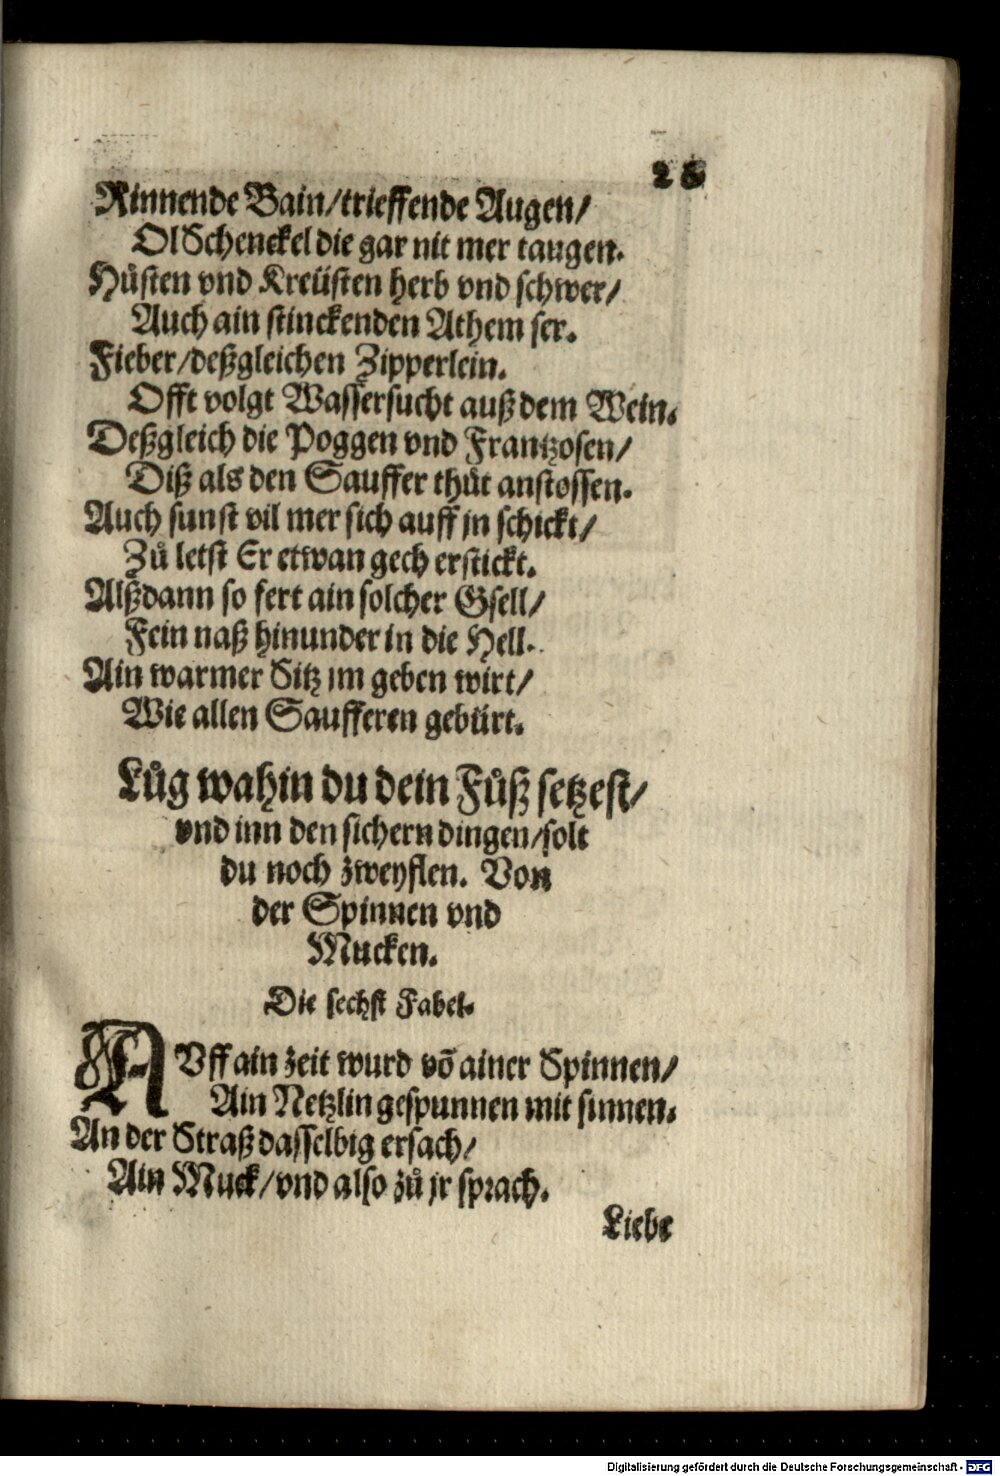 28
Rinnende Bain/trieffende Augen/
OlSchenckel die gar nit mer taugen.
Hůsten vnd Kreüsten herb vnd schwer/
Auch ain stinckenden Athem ser.
Fieber/deßgleichen Zipperlein.
Offt volgt Wassersucht auß dem Wein.
Deßgleich die Poggen vnd Frantzosen/
Diß als den Sauffer thůt anstossen.
Auch sunst vil mer sich auff jn schickt/
Zů letst Er etwan gech erstickt.
Alßdann so fert ain solcher Gsell/
Fein naß hinunder in die Hell.
Ain warmer Sitz im geben wirt/
Wie allen Saufferen gebürt.
Lůg wahin du dein Fůß setzest/
vnd inn den sichern dingen/solt
du noch zweyflen. Von
der Spinnen vnd
Mucken.
Die sechst Fabel.
AVff ain zeit wurd võ ainer Spinnen/
Ain Netzlin gespunnen mit sinnen.
An der Straß dasselbig ersach/
Ain Muck/vnd also zů jr sprach.
Liebe
Digitalisierung gefördert durch die Deutsche Forschungsgemeinschaft - DFG